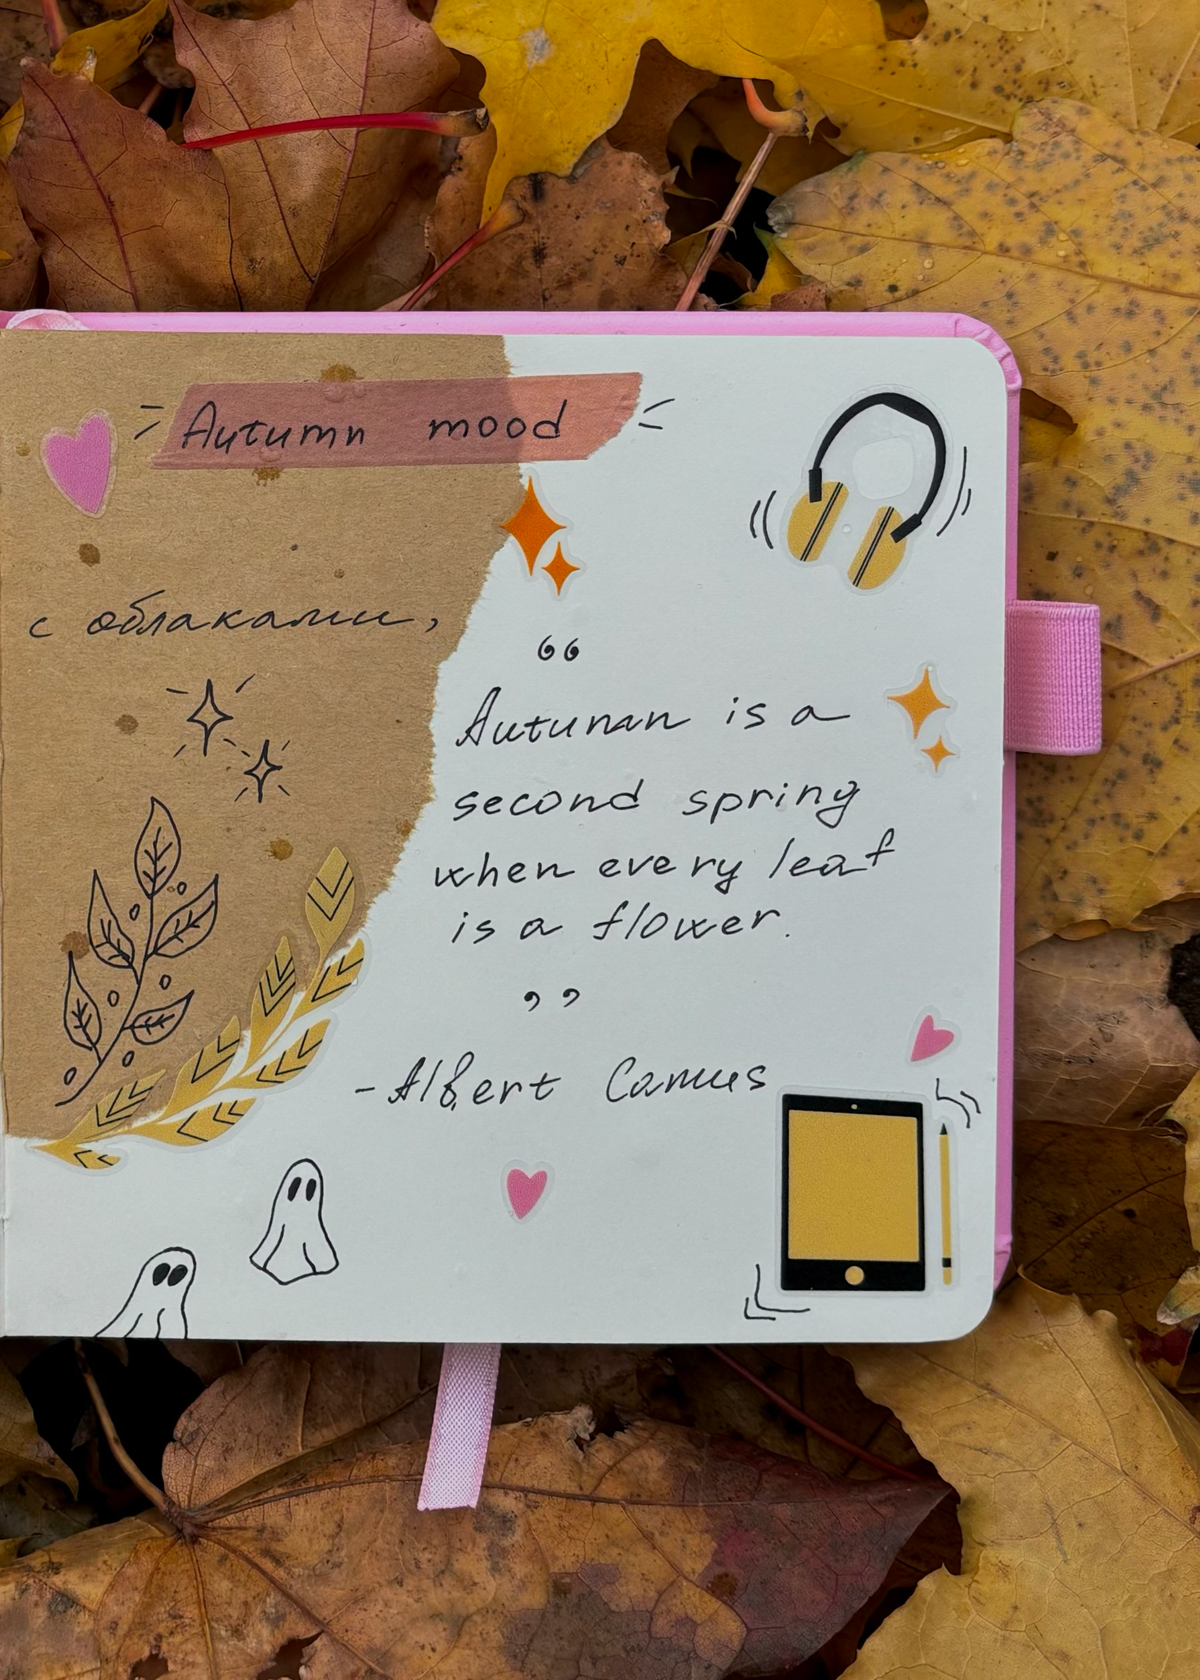 Autumn mood
с облаками,
“
Autumn is a
second spring
when every leaf
is a flower.
”
-Albert Camus